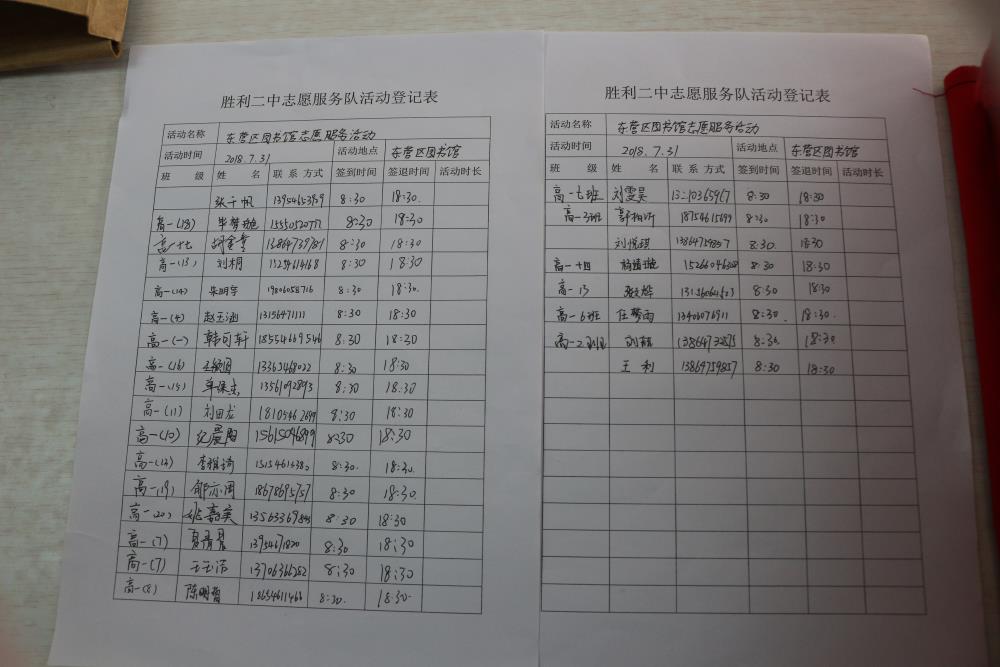 胜利二中志愿服务队活动登记表
活动名称 东营区图书馆志愿服务活动
活动时间 2018.7.31 活动地点 东营区图书馆
班 级 姓 名 联 系 方式 签到时间 签退时间 活动时长
张千帆 13954653959 8:30 18:30.
高一(18) 毕梦 15550520777 8:30 18:30
高一十七 13864739789 8:30 18:30
高一(13) 刘桐 8:30 18:30
高一(14) 朱明宇 19806058716 8:30 18:30.
高一(4) 赵玉涵 13156471111 8:30 18:30
高一(一) 韩可轩 18554669546 8:30 18:30
高一(16) 13363468022 8:30 18:30
高一(15) 13561092893 8:30 18:30
高一(11) 刘田龙 18105462699 8:30 18:30
高一(10) 纪晨阳 15615046899 8:30 18:30
高一(13) 李雅琦 8:30. 18:30.
高一(19) 邹亦周 18678695757 8:30 18:30.
高一(20) 嘉美 8:30 18:30
高一(7) 13954671820 8:30 18:30
高一(7) 王玉洁 13706366252 8:30 18:30
高一(8) 陈明哲 18654611466 8:30. 18:30.
胜利二中志愿服务队活动登记表
活动名称 东营区图书馆志愿服务活动
活动时间 2018.7.31 活动地点 东营区图书馆
班 级 姓 名 联 系 方式 签到时间 签退时间 活动时长
高一七班 刘雯昊 8:30 18:30
高一3班 郭柏 18754615699 8:30 18:30
刘悦琪 13864759857 8:30. 18:30
高一十四 8:30 18:30
高一13 8:30 18:30
高一6班 任梦雨 13406076911 8:30. 18:30.
高一2班 刘 13864732875 8:30 18:30
王利 13864759857 8:30 18:30